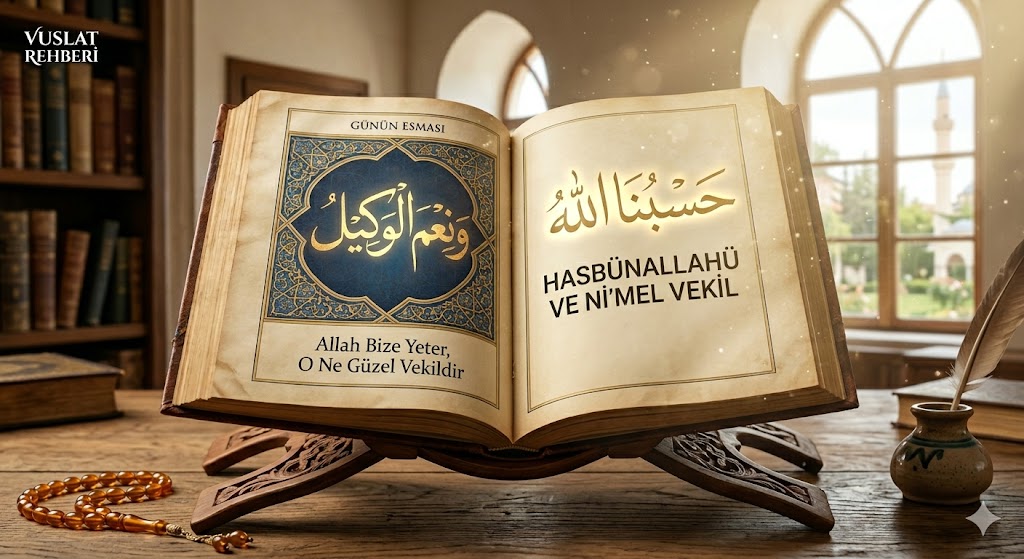 VUSLAT
REHBERİ
GÜNÜN ESMASI
وَنِعْمَ الْوَكِيلُ
Allah Bize Yeter,
O Ne Güzel Vekildir
حَسْبُنَا اللهُ
HASBÜNALLAHÜ
VE Nİ'MEL VEKİL